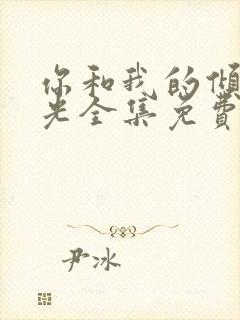 你和我的倾
光全集免費
尹冰